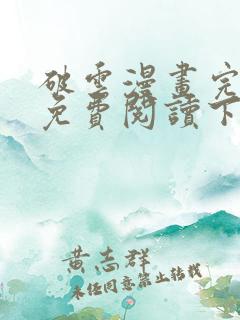 破雲漫畫完
免費閱讀下
黃志群
未經同意禁止轉載